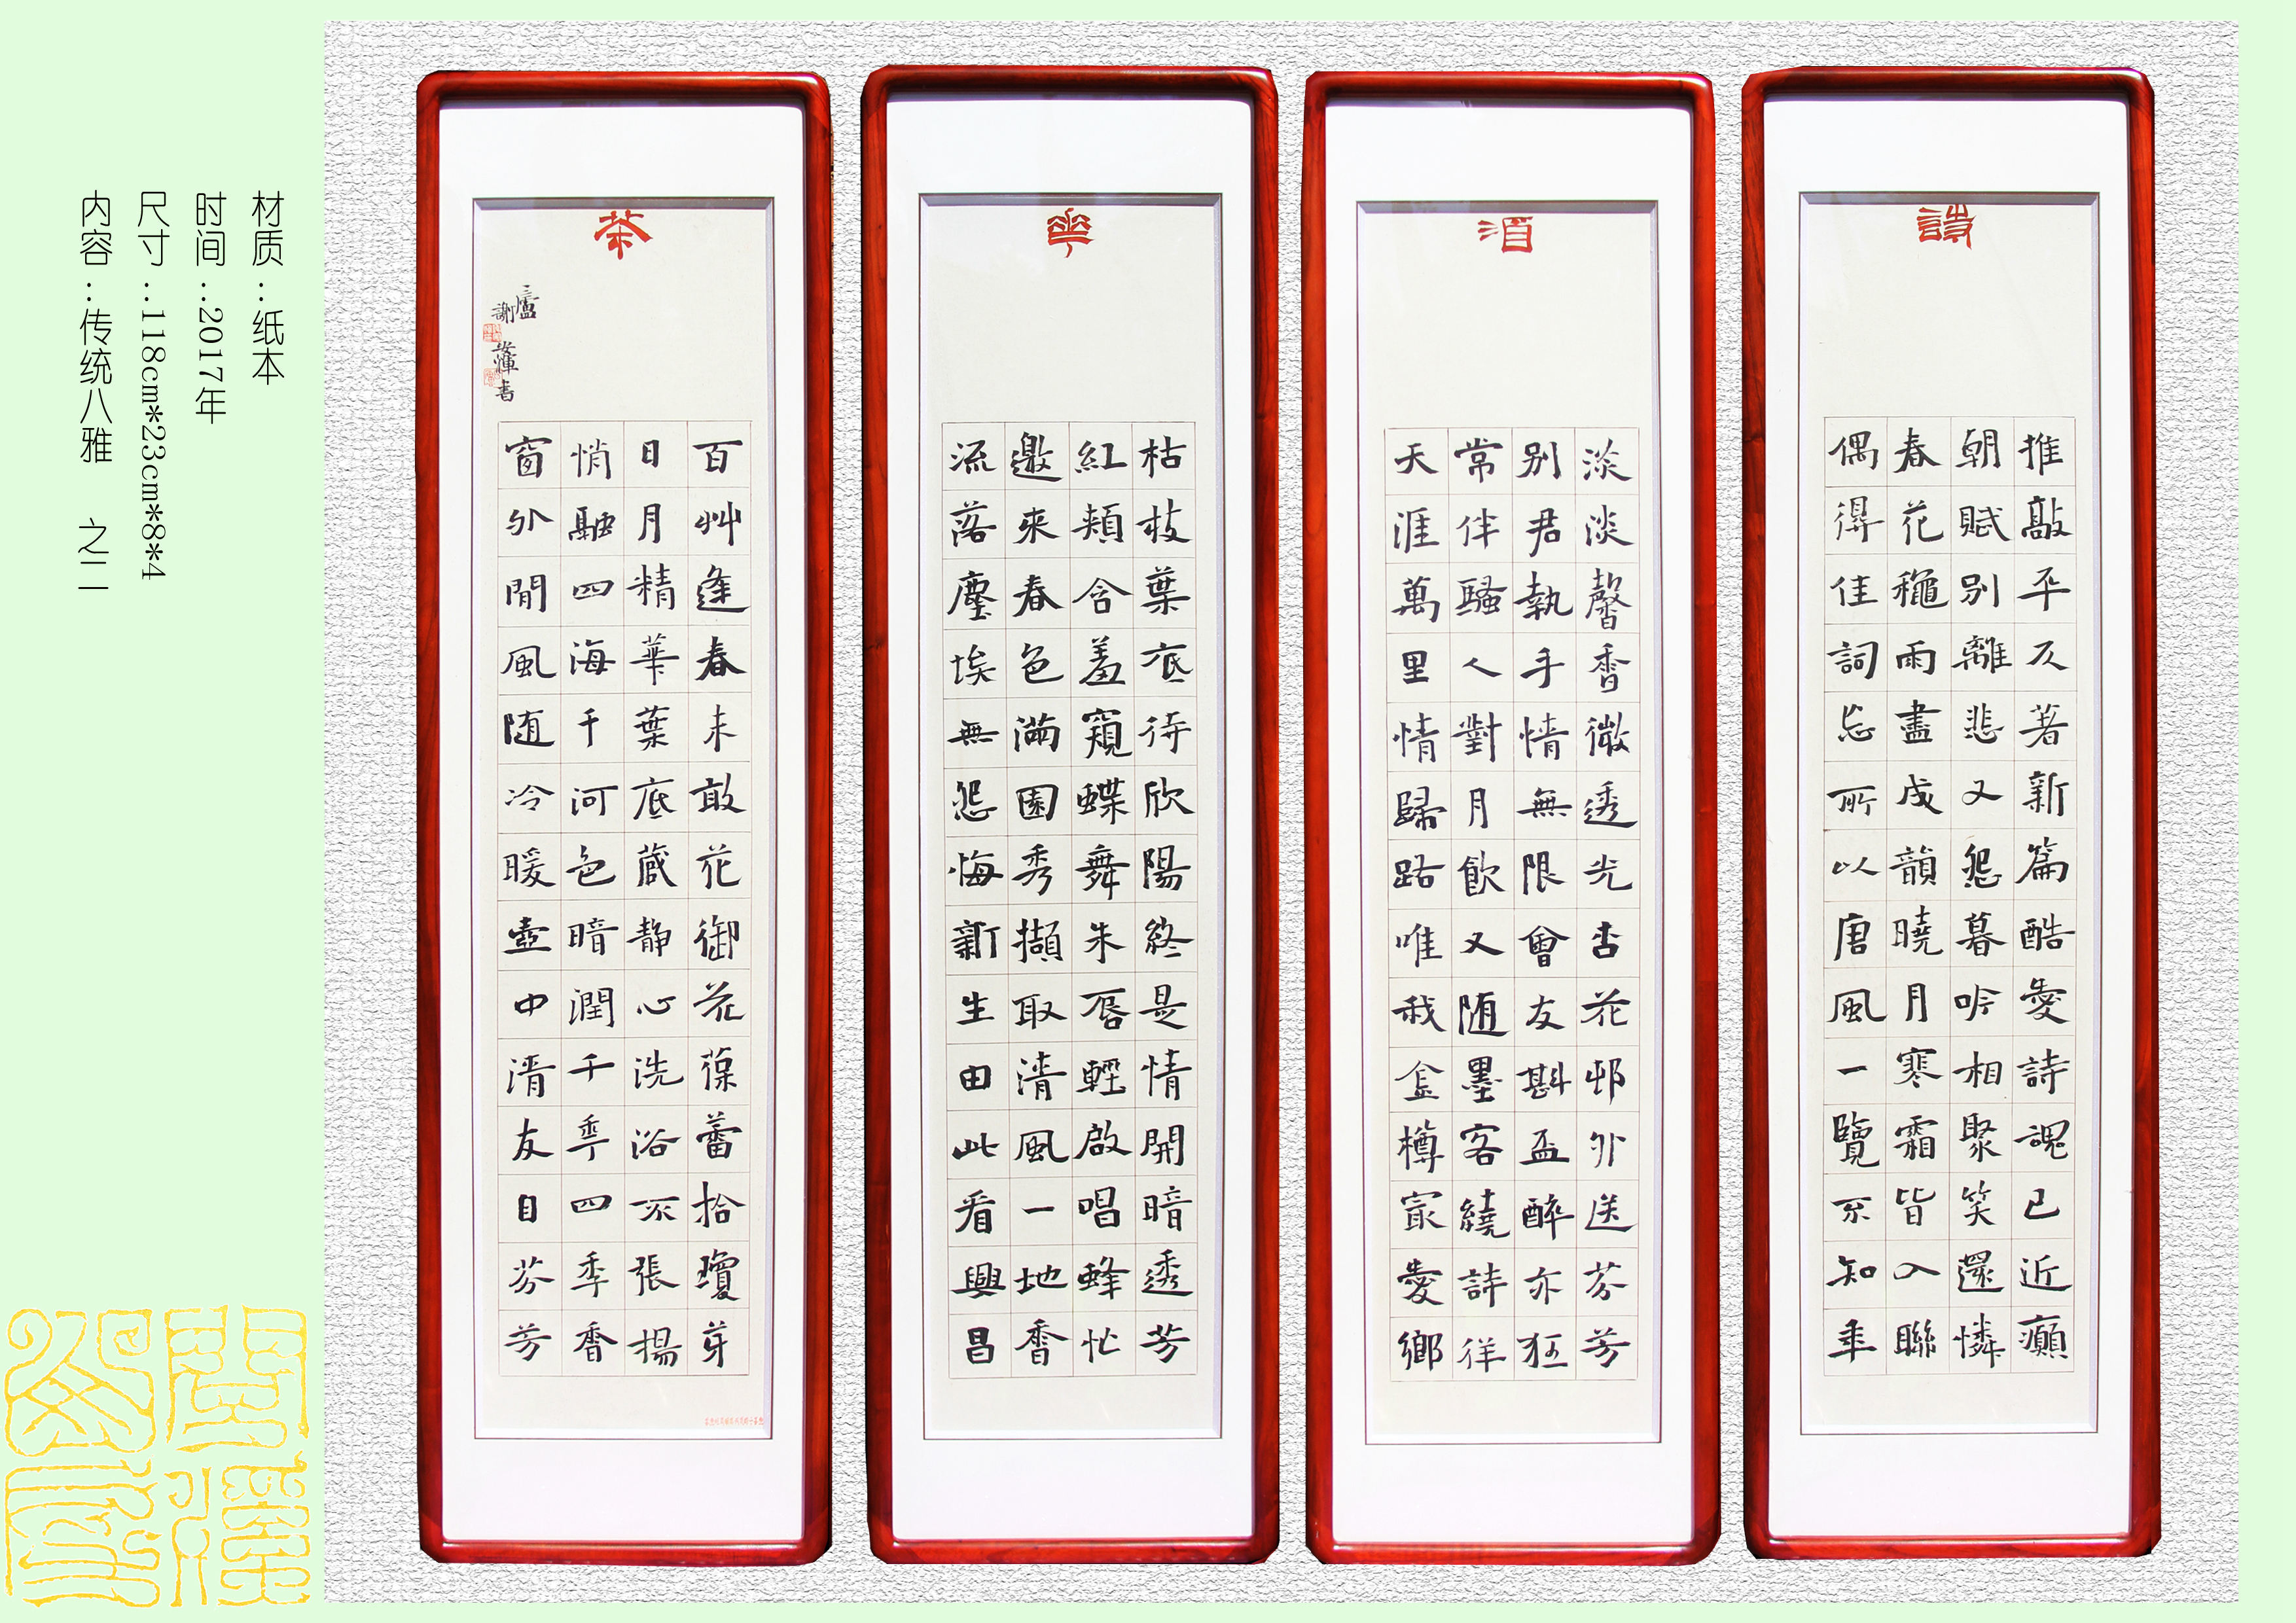 材质：纸本
时间：2017年
尺寸：118cm*23cm*8*4
内容：传统八雅 之二
詩
推敲平仄著新篇酷愛詩魂已近癲
朝賦別離悲又怨暮吟相聚笑還憐
春花穐雨盡成韻曉月寒霜皆入聯
偶得佳詞忘所以唐風一覽不知年
酒
淡淡馨香微透光杏花邨外送芬芳
別君執手情無限會友斟盃醉亦狂
常伴騷人對月飲又随墨客繞詩徉
天涯萬里情歸路唯我金樽最愛鄉
華
枯枝葉底待欣陽終是情開暗透芳
紅頰含羞窺蝶舞朱唇輕啟唱蜂忙
邀來春色滿園秀擷取清風一地香
流落塵埃無怨悔新生由此看興昌
茶
百艸逢春未敢花御花葆蕾拾瓊芽
日月精華葉底蔵静心洗浴不張揚
悄融四海千河色暗潤千季四季香
窗外閒風随冷暖壺中清友自芬芳
三盧
謝 輝書